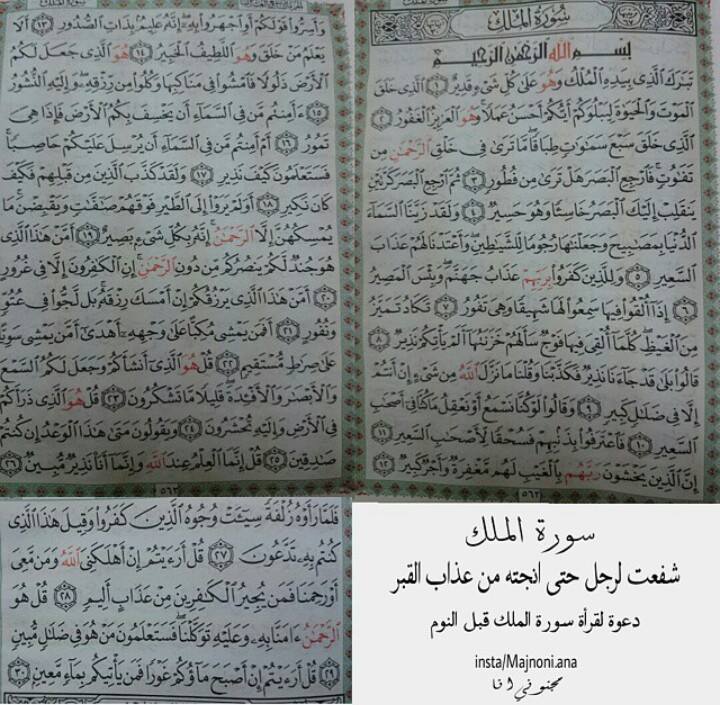 سُورَةُ المُلْكِ
بِسْمِ اللَّهِ الرَّحْمَٰنِ الرَّحِيمِ
تَبَٰرَكَ ٱلَّذِى بِيَدِهِ ٱلْمُلْكُ وَهُوَ عَلَىٰ كُلِّ شَىْءٍ قَدِيرٌ ١ ٱلَّذِى خَلَقَ
ٱلْمَوْتَ وَٱلْحَيَوٰةَ لِيَبْلُوَكُمْ أَيُّكُمْ أَحْسَنُ عَمَلًا وَهُوَ ٱلْعَزِيزُ ٱلْغَفُورُ ٢
ٱلَّذِى خَلَقَ سَبْعَ سَمَٰوَٰتٍ طِبَاقًا مَّا تَرَىٰ فِى خَلْقِ ٱلرَّحْمَٰنِ مِن
تَفَٰوُتٍ فَٱرْجِعِ ٱلْبَصَرَ هَلْ تَرَىٰ مِن فُطُورٍ ٣ ثُمَّ ٱرْجِعِ ٱلْبَصَرَ كَرَّتَيْنِ
يَنقَلِبْ إِلَيْكَ ٱلْبَصَرُ خَاسِئًا وَهُوَ حَسِيرٌ ٤ وَلَقَدْ زَيَّنَّا ٱلسَّمَآءَ
ٱلدُّنْيَا بِمَصَٰبِيحَ وَجَعَلْنَٰهَا رُجُومًا لِّلشَّيَٰطِينِ وَأَعْتَدْنَا لَهُمْ عَذَابَ
ٱلسَّعِيرِ ٥ وَلِلَّذِينَ كَفَرُوا۟ بِرَبِّهِمْ عَذَابُ جَهَنَّمَ وَبِئْسَ ٱلْمَصِيرُ
٦ إِذَآ أُلْقُوا۟ فِيهَا سَمِعُوا۟ لَهَا شَهِيقًا وَهِىَ تَفُورُ ٧ تَكَادُ تَمَيَّزُ
مِنَ ٱلْغَيْظِ كُلَّمَآ أُلْقِىَ فِيهَا فَوْجٌ سَأَلَهُمْ خَزَنَتُهَآ أَلَمْ يَأْتِكُمْ نَذِيرٌ ٨
قَالُوا۟ بَلَىٰ قَدْ جَآءَنَا نَذِيرٌ فَكَذَّبْنَا وَقُلْنَا مَا نَزَّلَ ٱللَّهُ مِن شَىْءٍ إِنْ أَنتُمْ
إِلَّا فِى ضَلَٰلٍ كَبِيرٍ ٩ وَقَالُوا۟ لَوْ كُنَّا نَسْمَعُ أَوْ نَعْقِلُ مَا كُنَّا فِىٓ أَصْحَٰبِ
ٱلسَّعِيرِ ١٠ فَٱعْتَرَفُوا۟ بِذَنۢبِهِمْ فَسُحْقًا لِّأَصْحَٰبِ ٱلسَّعِيرِ ١١
إِنَّ ٱلَّذِينَ يَخْشَوْنَ رَبَّهُم بِٱلْغَيْبِ لَهُم مَّغْفِرَةٌ وَأَجْرٌ كَبِيرٌ ١٢
٥٦٢
وَأَسِرُّوا۟ قَوْلَكُمْ أَوِ ٱجْهَرُوا۟ بِهِ إِنَّهُ عَلِيمٌۢ بِذَاتِ ٱلصُّدُورِ ١٣ أَلَا
يَعْلَمُ مَنْ خَلَقَ وَهُوَ ٱللَّطِيفُ ٱلْخَبِيرُ ١٤ هُوَ ٱلَّذِى جَعَلَ لَكُمُ
ٱلْأَرْضَ ذَلُولًا فَٱمْشُوا۟ فِى مَنَاكِبِهَا وَكُلُوا۟ مِن رِّزْقِهِ وَإِلَيْهِ ٱلنُّشُورُ
١٥ ءَأَمِنتُم مَّن فِى ٱلسَّمَآءِ أَن يَخْسِفَ بِكُمُ ٱلْأَرْضَ فَإِذَا هِىَ
تَمُورُ ١٦ أَمْ أَمِنتُم مَّن فِى ٱلسَّمَآءِ أَن يُرْسِلَ عَلَيْكُمْ حَاصِبًا
فَسَتَعْلَمُونَ كَيْفَ نَذِيرِ ١٧ وَلَقَدْ كَذَّبَ ٱلَّذِينَ مِن قَبْلِهِمْ فَكَيْفَ
كَانَ نَكِيرِ ١٨ أَوَلَمْ يَرَوْا۟ إِلَى ٱلطَّيْرِ فَوْقَهُمْ صَٰٓفَّٰتٍ وَيَقْبِضْنَ مَا
يُمْسِكُهُنَّ إِلَّا ٱلرَّحْمَٰنُ إِنَّهُ بِكُلِّ شَىْءٍۭ بَصِيرٌ ١٩ أَمَّنْ هَٰذَا ٱلَّذِى
هُوَ جُندٌ لَّكُمْ يَنصُرُكُم مِّن دُونِ ٱلرَّحْمَٰنِ إِنِ ٱلْكَٰفِرُونَ إِلَّا فِى غُرُورٍ
٢٠ أَمَّنْ هَٰذَا ٱلَّذِى يَرْزُقُكُمْ إِنْ أَمْسَكَ رِزْقَهُ بَل لَّجُّوا۟ فِى عُتُوٍّ
وَنُفُورٍ ٢١ أَفَمَن يَمْشِى مُكِبًّا عَلَىٰ وَجْهِهِ أَهْدَىٰٓ أَمَّن يَمْشِى سَوِيًّا
عَلَىٰ صِرَٰطٍ مُّسْتَقِيمٍ ٢٢ قُلْ هُوَ ٱلَّذِىٓ أَنشَأَكُمْ وَجَعَلَ لَكُمُ ٱلسَّمْعَ
وَٱلْأَبْصَٰرَ وَٱلْأَفْـِٔدَةَ قَلِيلًا مَّا تَشْكُرُونَ ٢٣ قُلْ هُوَ ٱلَّذِى ذَرَأَكُمْ
فِى ٱلْأَرْضِ وَإِلَيْهِ تُحْشَرُونَ ٢٤ وَيَقُولُونَ مَتَىٰ هَٰذَا ٱلْوَعْدُ إِن كُنتُمْ
صَٰدِقِينَ ٢٥ قُلْ إِنَّمَا ٱلْعِلْمُ عِندَ ٱللَّهِ وَإِنَّمَآ أَنَا۠ نَذِيرٌ مُّبِينٌ ٢٦
٥٦٣
فَلَمَّا رَأَوْهُ زُلْفَةً سِيٓـَٔتْ وُجُوهُ ٱلَّذِينَ كَفَرُوا۟ وَقِيلَ هَٰذَا ٱلَّذِى
كُنتُم بِهِ تَدَّعُونَ ٢٧ قُلْ أَرَءَيْتُمْ إِنْ أَهْلَكَنِىَ ٱللَّهُ وَمَن مَّعِىَ
أَوْ رَحِمَنَا فَمَن يُجِيرُ ٱلْكَٰفِرِينَ مِنْ عَذَابٍ أَلِيمٍ ٢٨ قُلْ هُوَ
ٱلرَّحْمَٰنُ ءَامَنَّا بِهِ وَعَلَيْهِ تَوَكَّلْنَا فَسَتَعْلَمُونَ مَنْ هُوَ فِى ضَلَٰلٍ مُّبِينٍ
٢٩ قُلْ أَرَءَيْتُمْ إِنْ أَصْبَحَ مَآؤُكُمْ غَوْرًا فَمَن يَأْتِيكُم بِمَآءٍ مَّعِينٍۭ ٣٠
سورة الملك
شفعت لرجل حتى انجته من عذاب القبر
دعوة لقرأة سورة الملك قبل النوم
insta/Majnoni.ana
مجنوني انا